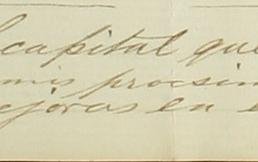 capital que
mis procsim
ejoras en e